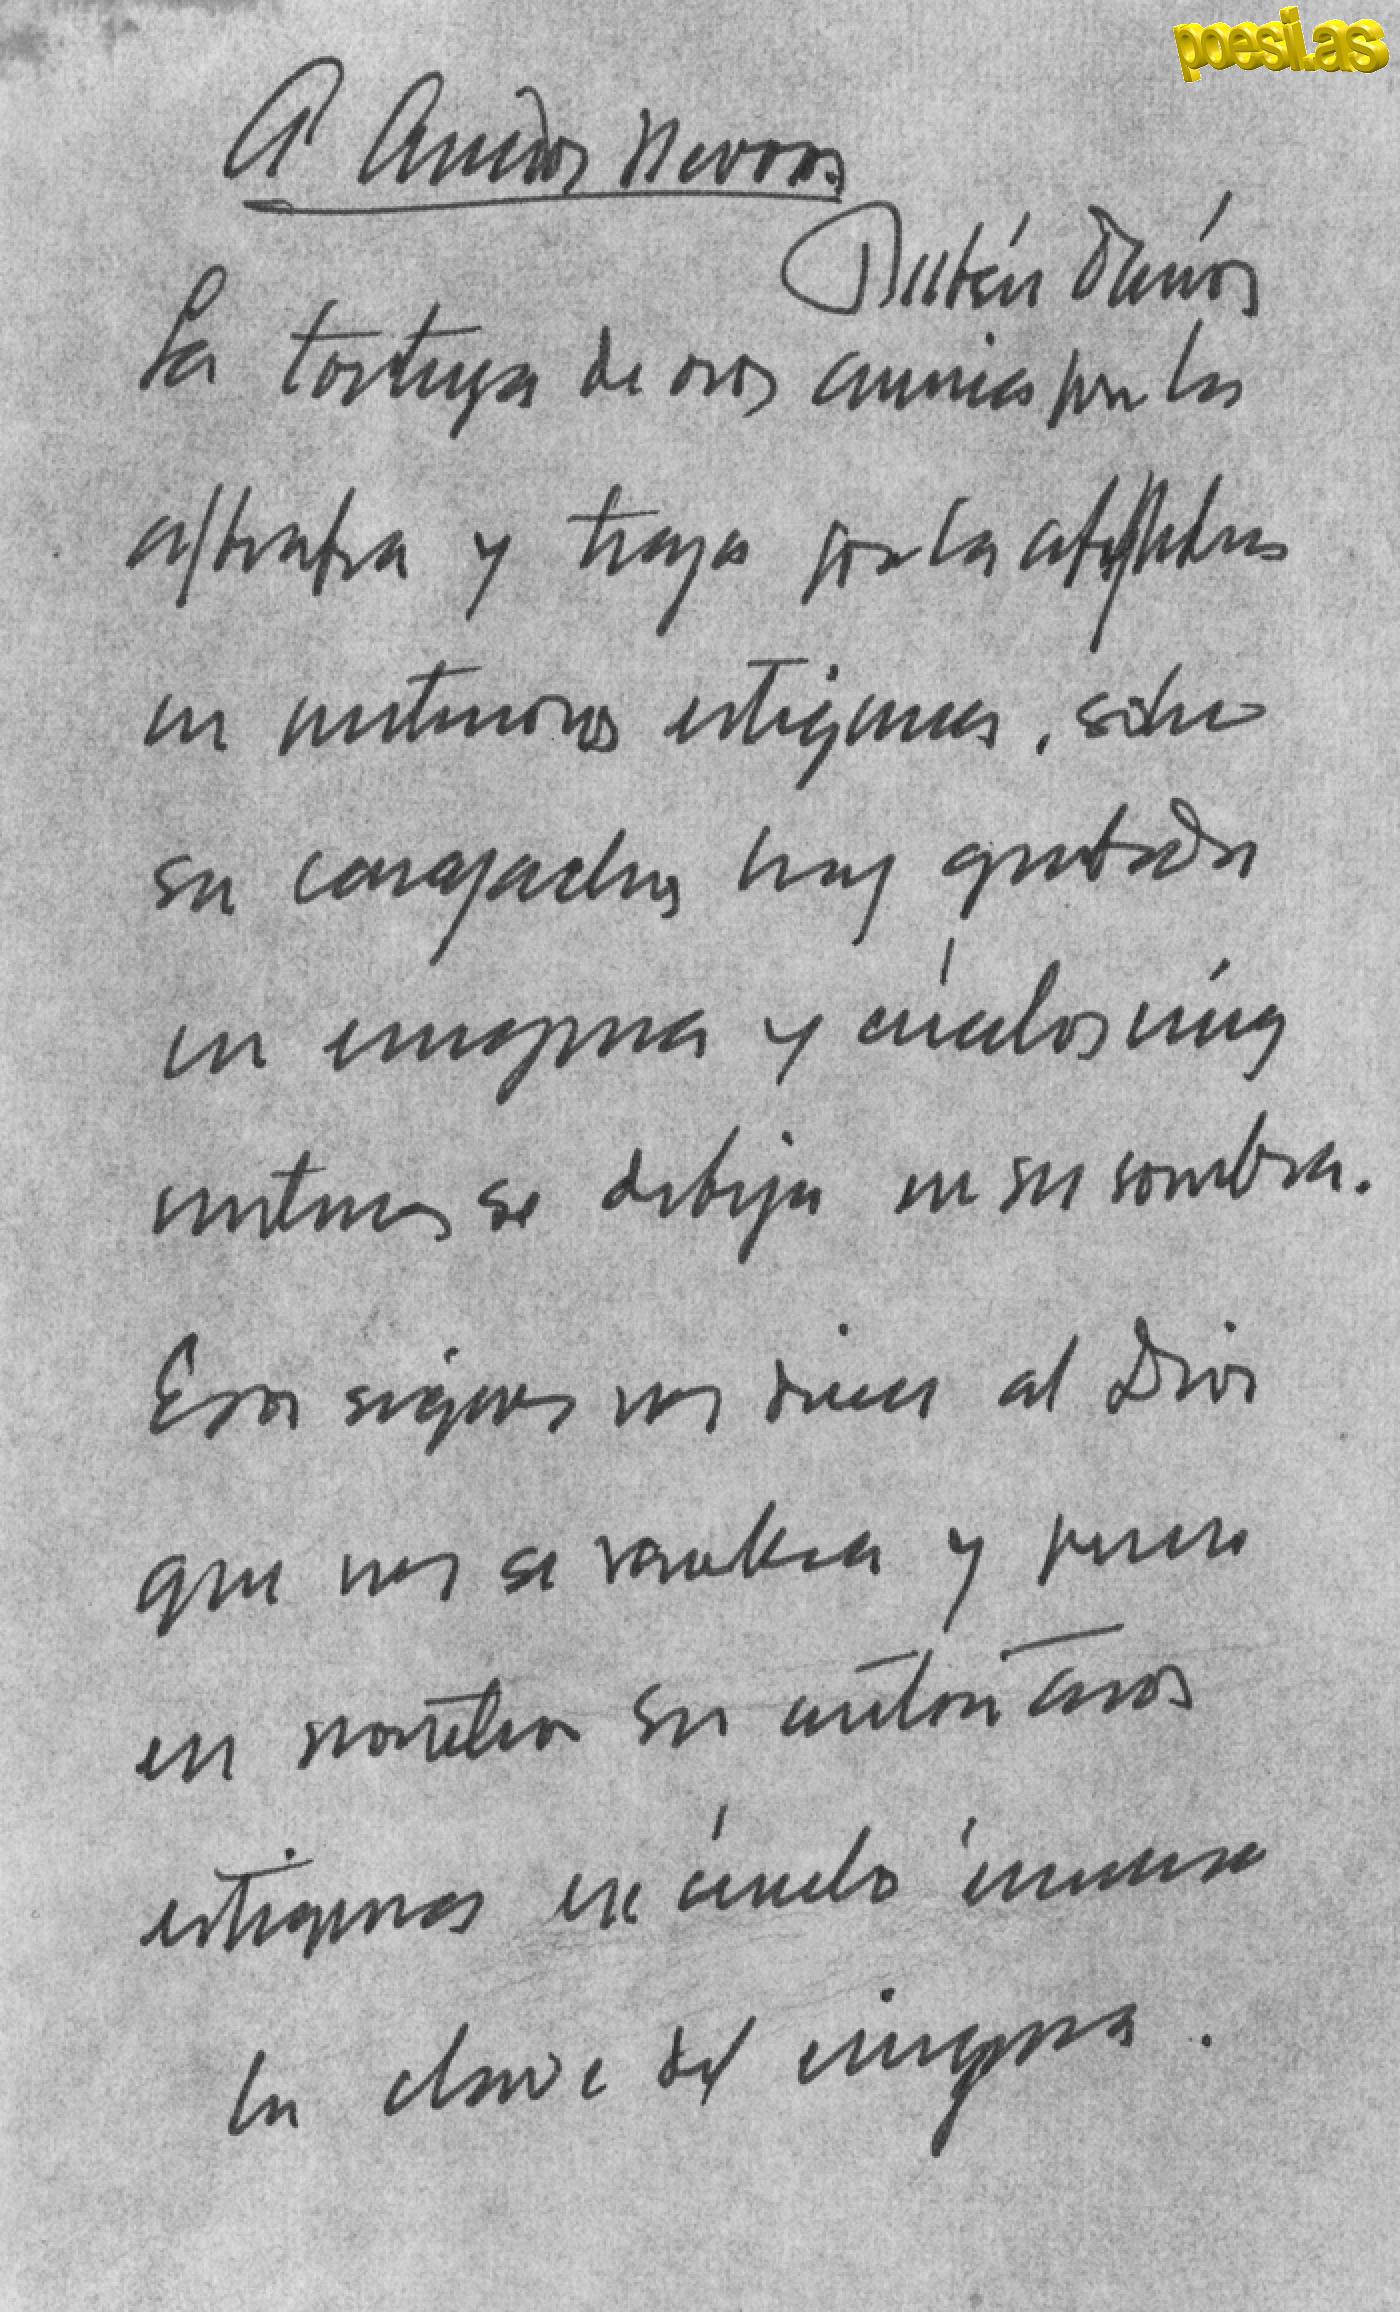 poesi.as
A Amado Nervo
Rubén Darío
La tortuga de oro camina por la
alfombra y traza por la alfombra
un misterioso estigma, sobre
su carapacho hay grabado
un enigma y círculo enig
mático se dibuja en su sombra.
Esos signos nos dicen al Dios
que no se nombra y ponen
en nosotros su autoritario
estigma ese círculo encierra
la clave del enigma.